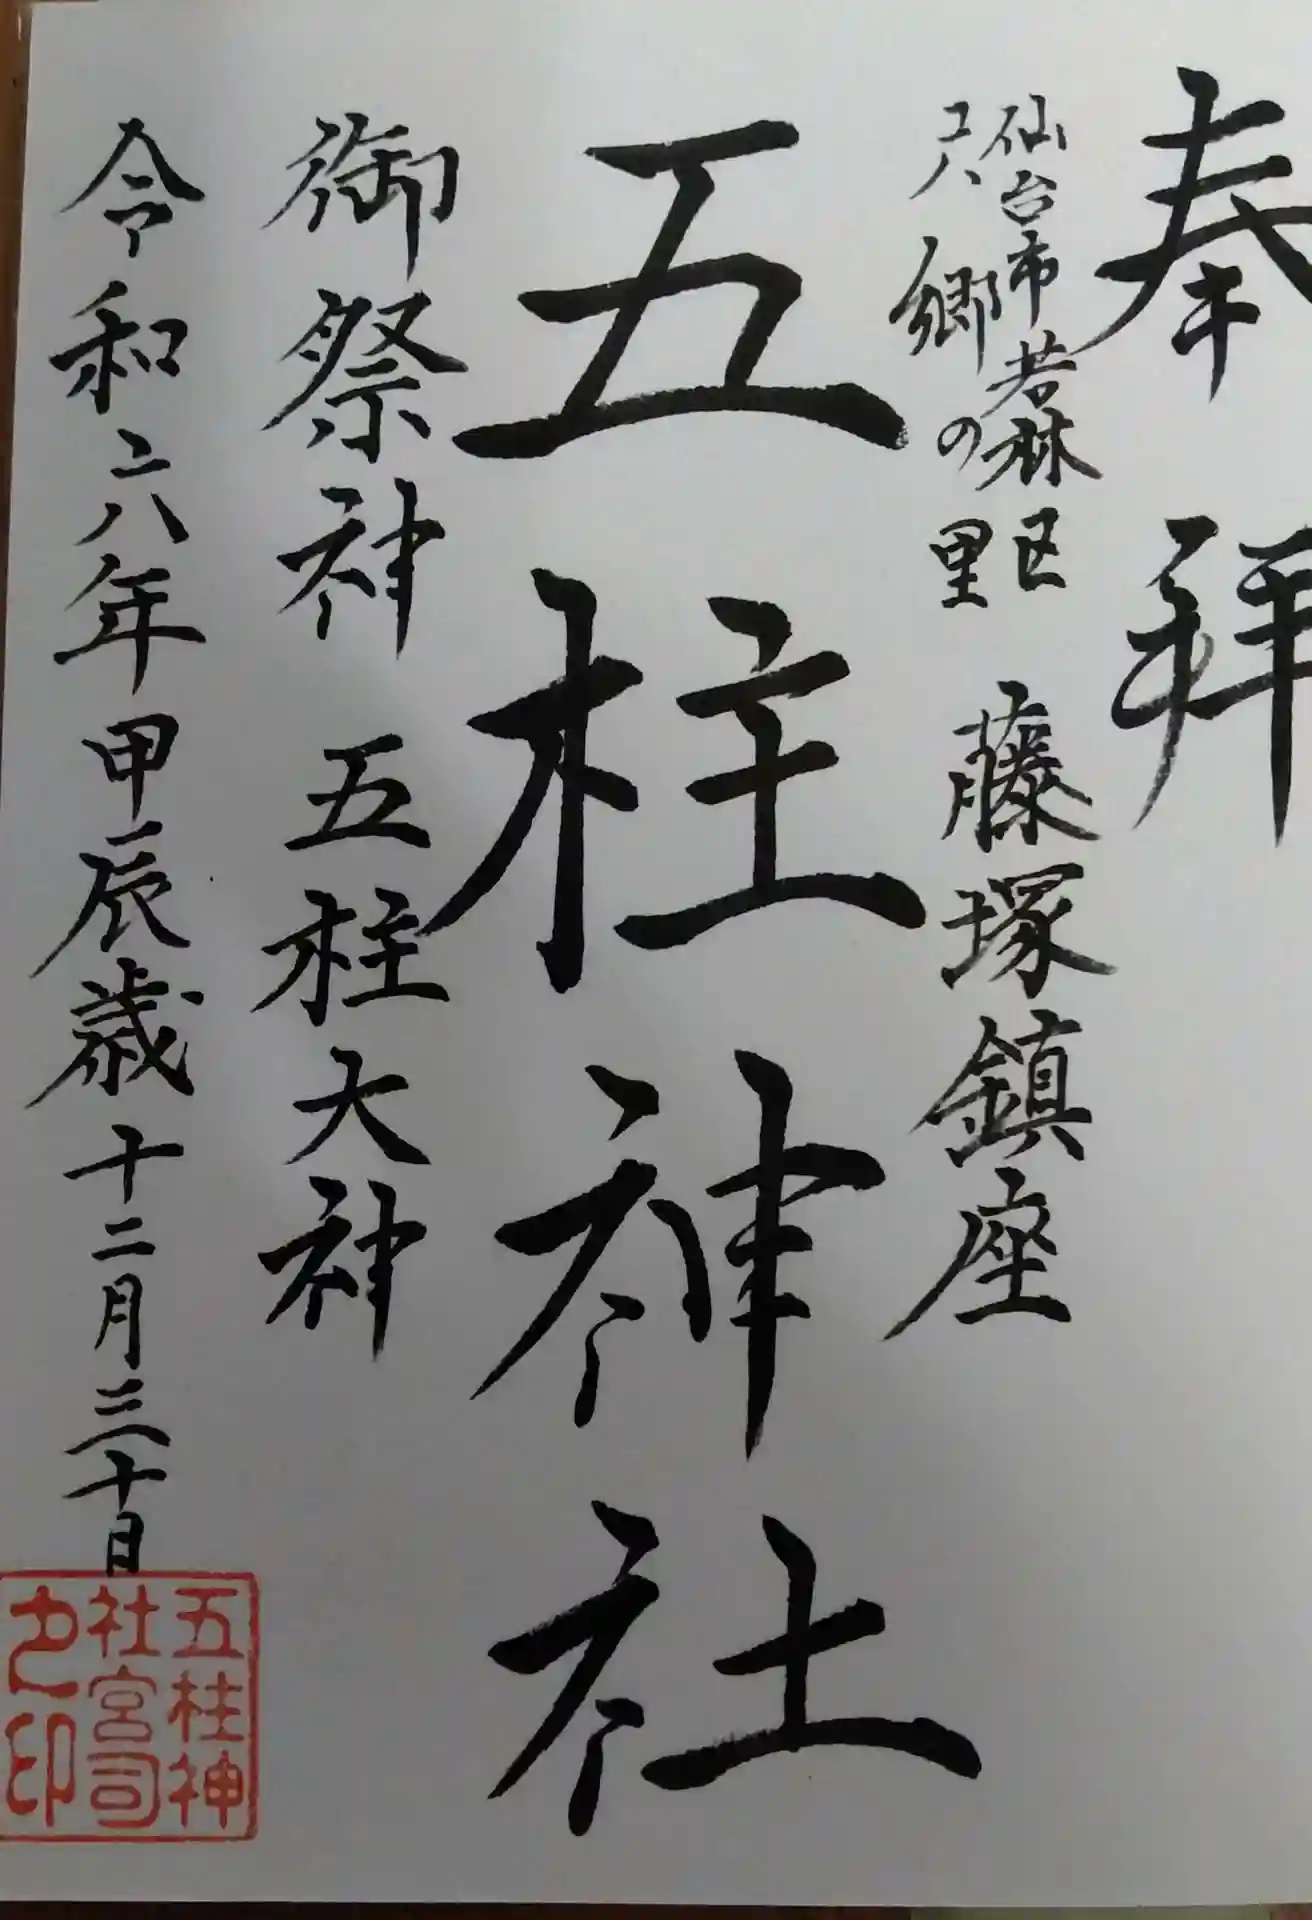 奉拝
仙台市若林区
六郷の里
藤塚鎮座
五柱神社
御祭神 五柱大神
令和六年甲辰歳十二月三十日
五柱神
社宮司
之印